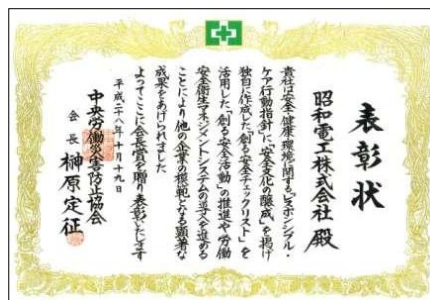 表彰状
昭和電工株式会社 殿
貴社は安全・健康・環境に関する「レスポンシブル・
ケア行動指針」に「安全文化の醸成」を掲げ
独自に作成した「創る安全チェックリスト」を
活用した「創る安全活動」の推進や労働
安全衛生マネジメントシステムの導入を進める
ことにより他の企業の模範となる顕著な
成果をあげられました
よってここに会長賞を贈り表彰いたします
平成二十八年十月十九日
中央労働災害防止協会
会長 榊原定征